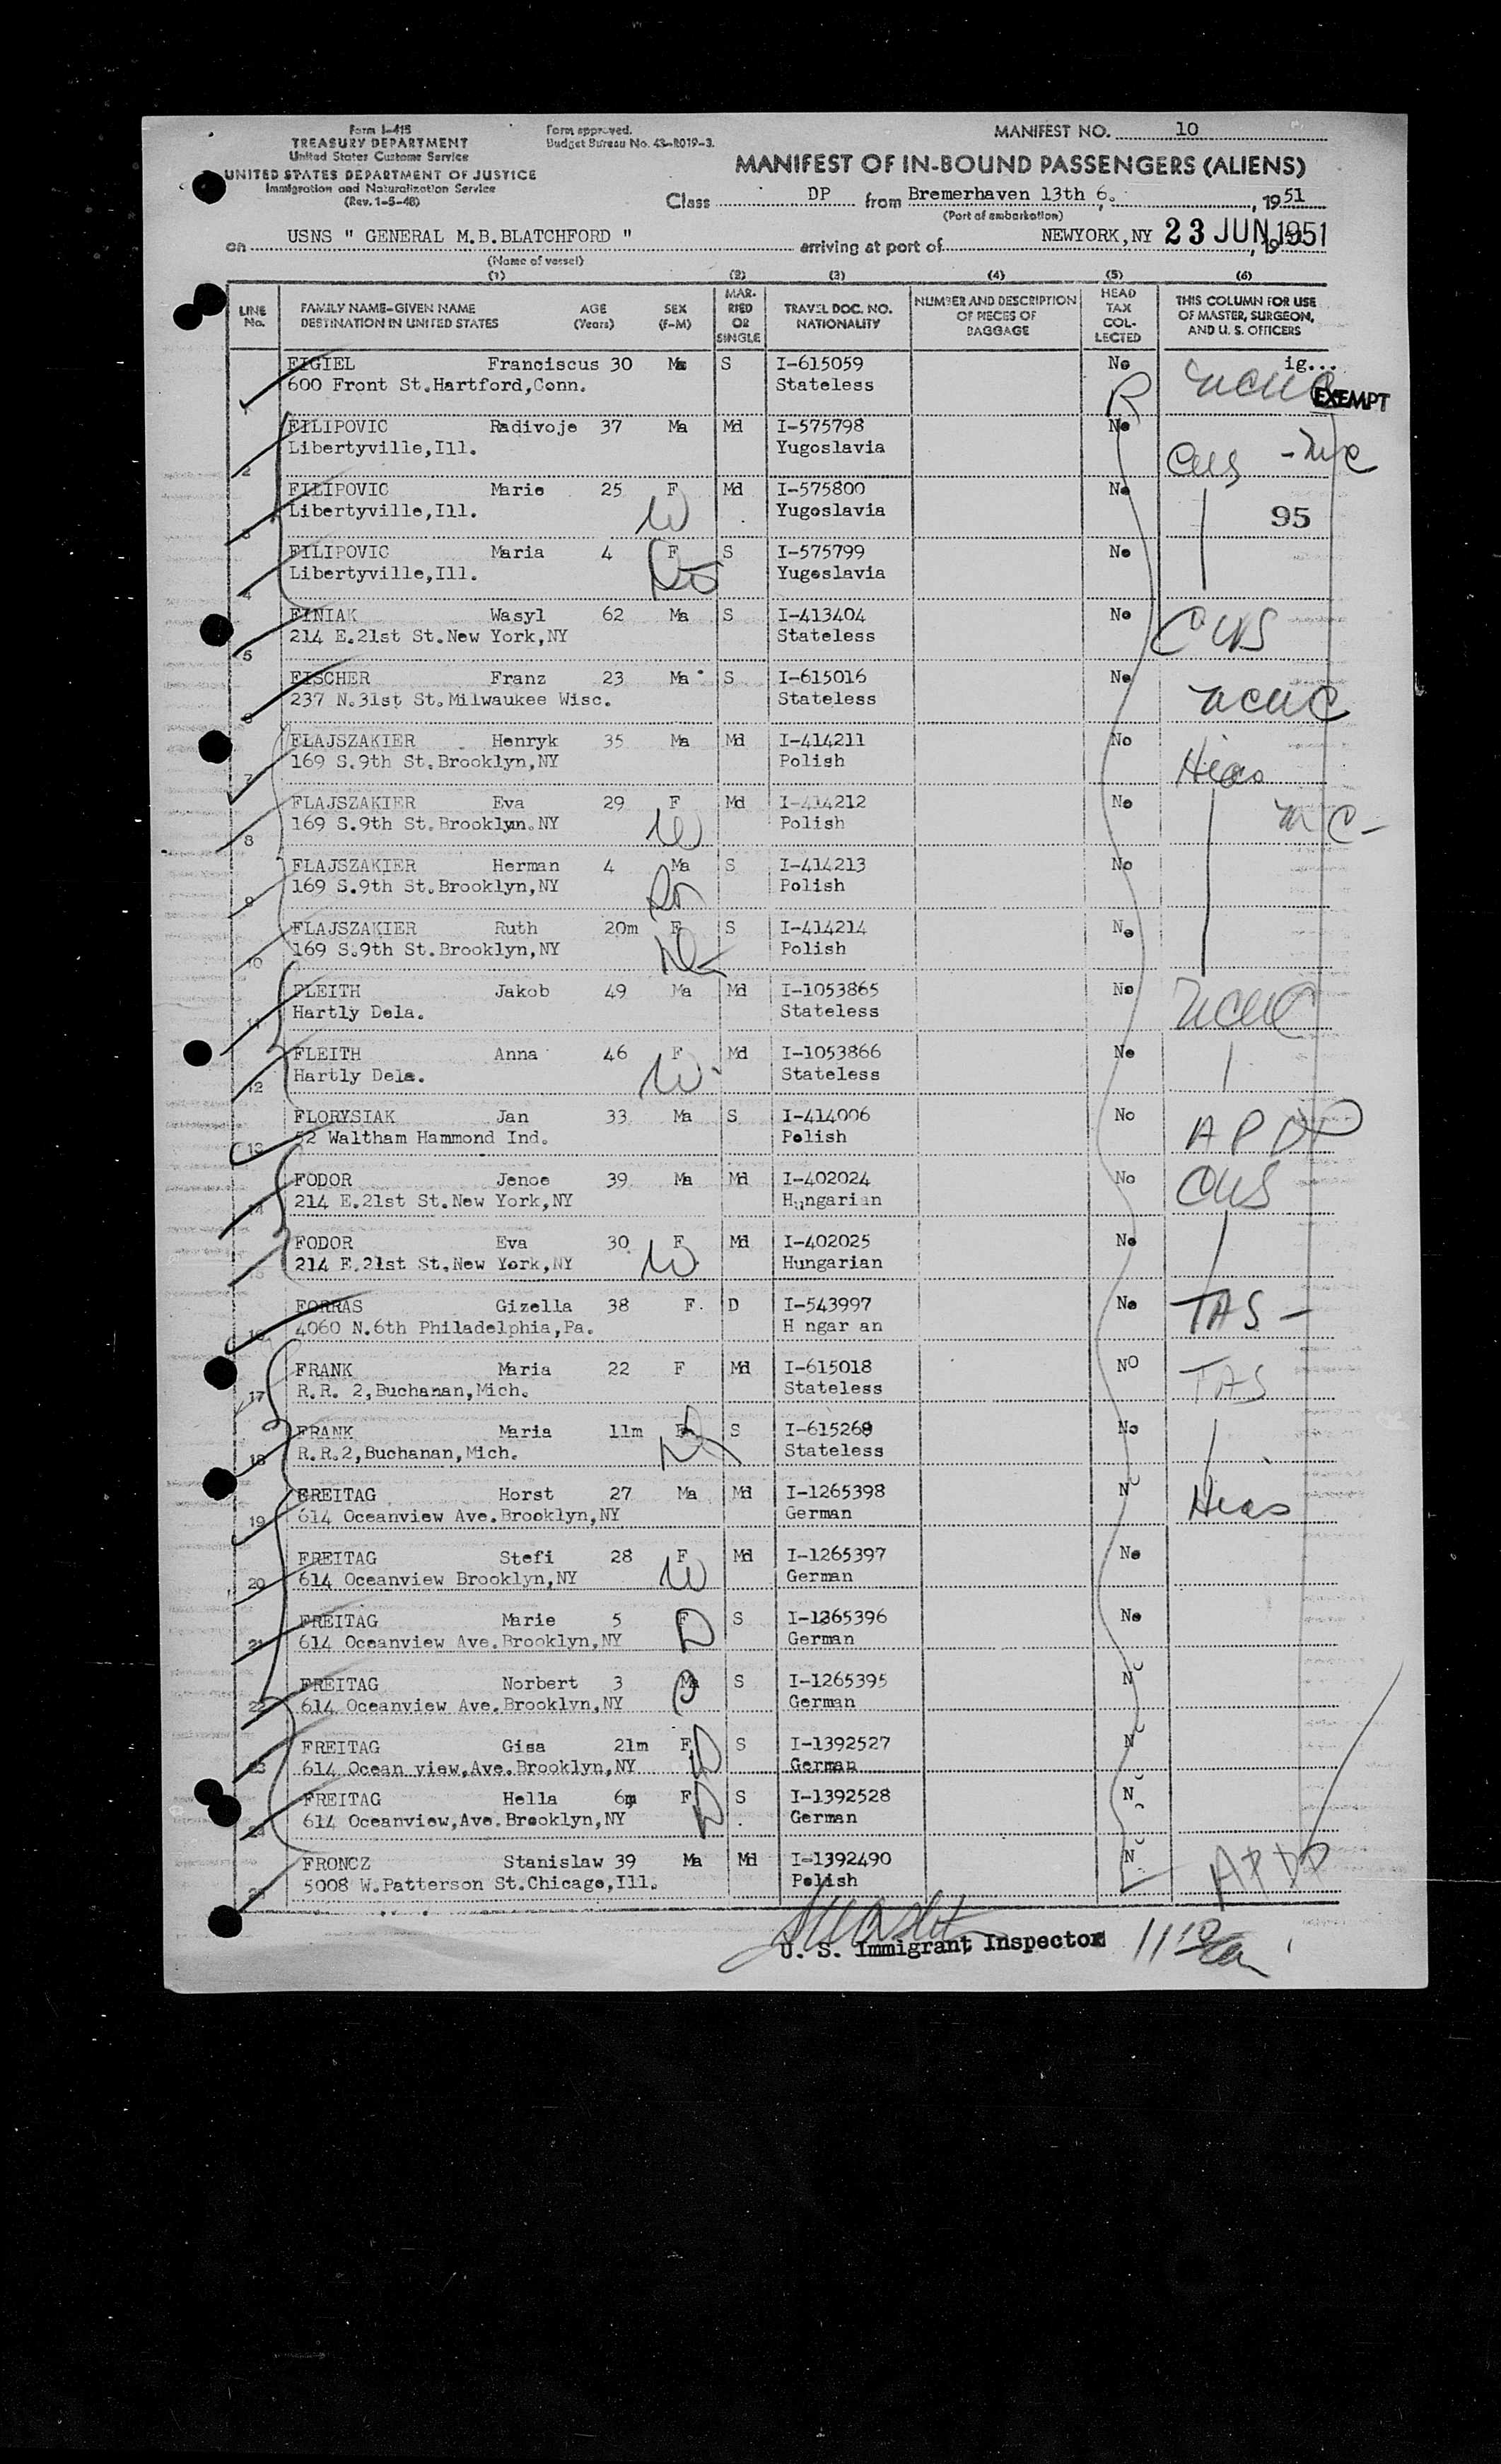 Form I-415
TREASURY DEPARTMENT
United States Customs Service
UNITED STATES DEPARTMENT OF JUSTICE
Immigration and Naturalization Service
(Rev. 1-5-48)
Form approved.
Budget Bureau No. 43-R019-3.
MANIFEST NO. 10
MANIFEST OF IN-BOUND PASSENGERS (ALIENS)
Class DP from Bremerhaven 13th 6. , 1951
(Port of embarkation)
on USNS " GENERAL M.B.BLATCHFORD " arriving at port of NEWYORK,NY 23 JUN 1951
(Name of vessel)
(1) (2) (3) (4) (5) (6)
LINE No. FAMILY NAME-GIVEN NAME DESTINATION IN UNITED STATES AGE (Years) SEX (F-M) MARRIED OR SINGLE TRAVEL DOC. NO. NATIONALITY NUMBER AND DESCRIPTION OF PIECES OF BAGGAGE HEAD TAX COLLECTED THIS COLUMN FOR USE OF MASTER, SURGEON, AND U. S. OFFICERS
FIGIEL Franciscus 30 Ma S I-615059 No ig...
1 600 Front St.Hartford,Conn. Stateless NCWC EXEMPT
FILIPOVIC Radivoje 37 Ma Md I-575798 No
2 Libertyville,Ill. Yugoslavia CWS
FILIPOVIC Marie 25 F Md I-575800 No
3 Libertyville,Ill. W Yugoslavia 95
FILIPOVIC Maria 4 F S I-575799 No
4 Libertyville,Ill. Yugoslavia
FINIAK Wasyl 62 Ma S I-413404 No
5 214 E.21st St.New York,NY Stateless CWS
FISCHER Franz 23 Ma S I-615016 No
6 237 N.31st St.Milwaukee Wisc. Stateless NCWC
FLAJSZAKIER Henryk 35 Ma Md I-414211 No
7 169 S.9th St.Brooklyn,NY Polish Hias
FLAJSZAKIER Eva 29 F Md I-414212 No
8 169 S.9th St.Brooklyn.NY W Polish
FLAJSZAKIER Herman 4 Ma S I-414213 No
9 169 S.9th St.Brooklyn,NY Polish
FLAJSZAKIER Ruth 20m F S I-414214 No
10 169 S.9th St.Brooklyn,NY Polish
FLEITH Jakob 49 Ma Md I-1053865 No
11 Hartly Dela. Stateless NCWC
FLEITH Anna 46 F Md I-1053866 No
12 Hartly Dela. W Stateless
FLORYSIAK Jan 33 Ma S I-414006 No
13 52 Waltham Hammond Ind. Polish APDP
FODOR Jenoe 39 Ma Md I-402024 No
14 214 E.21st St.New York,NY Hungarian CWS
FODOR Eva 30 F Md I-402025 No
15 214 E.21st St.New York,NY W Hungarian
FORRAS Gizella 38 F. D I-543997 No
16 4060 N.6th Philadelphia,Pa. H ngar an TAS -
FRANK Maria 22 F Md I-615018 NO
17 R.R. 2,Buchanan,Mich. Stateless TAS
FRANK Maria 11m S I-615268 No
18 R.R.2,Buchanan,Mich. Stateless
FREITAG Horst 27 Ma Md I-1265398 No
19 614 Oceanview Ave.Brooklyn,NY German Hias
FREITAG Stefi 28 F Md I-1265397 No
20 614 Oceanview Brooklyn,NY W German
FREITAG Marie 5 F S I-1265396 No
21 614 Oceanview Ave.Brooklyn,NY D German
FREITAG Norbert 3 Ma S I-1265395 No
22 614 Oceanview Ave.Brooklyn,NY German
FREITAG Gisa 21m F S I-1392527 No
23 614 Ocean view,Ave.Brooklyn,NY D German
FREITAG Hella 6m F S I-1392528 No
24 614 Oceanview,Ave.Brooklyn,NY D German
FRONCZ Stanislaw 39 Ma Md I-1392490 No
25 5008 W.Patterson St.Chicago,Ill. Polish APDP
U. S. Immigrant Inspector